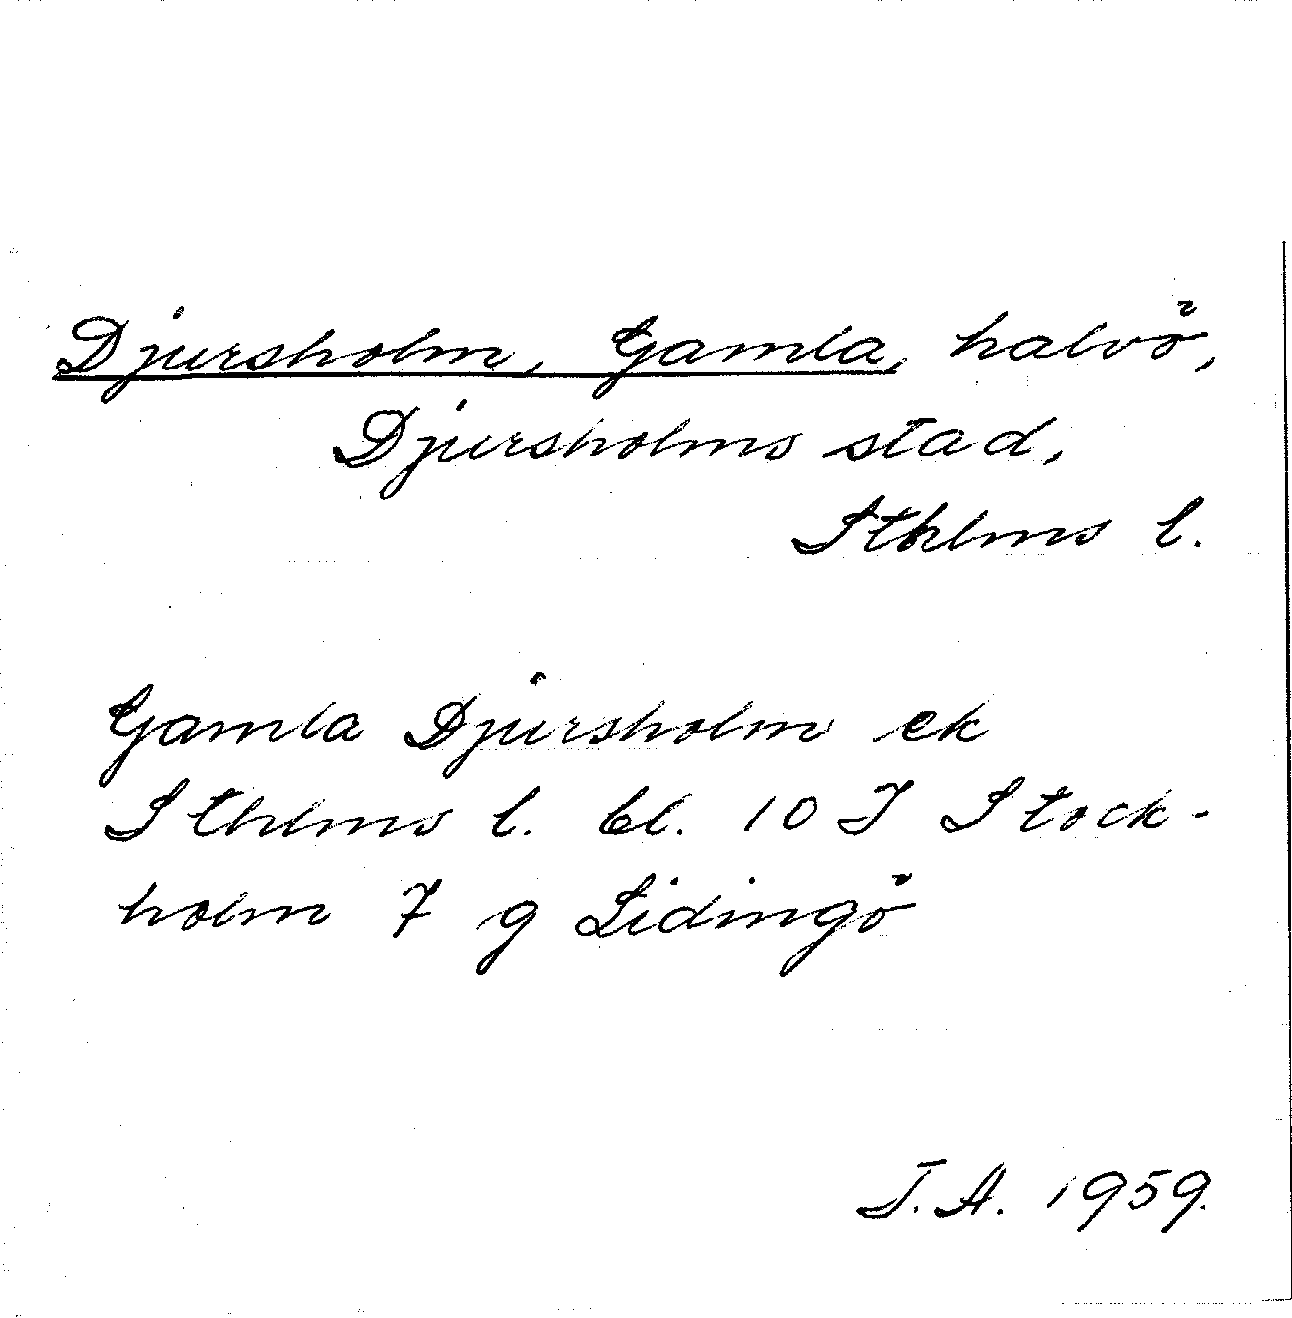 Djursholm, Gamla, halvö,
Djursholms stad,
Sthlms l.
Gamla Djursholm ek
Sthlms l. bl. 10 I Stock-
holm 7 g Lidingö
T.A. 1959.